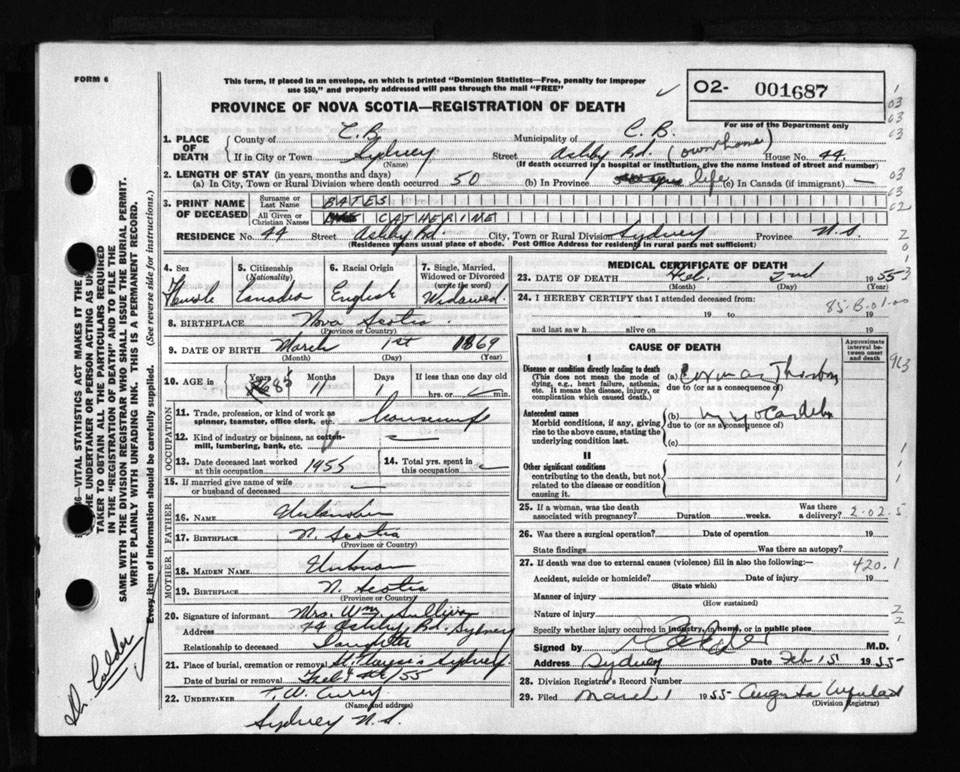 FORM 6
This form, if placed in an envelope, on which is printed "Dominion Statistics—Free, penalty for improper
use $50," and properly addressed will pass through the mail "FREE"
PROVINCE OF NOVA SCOTIA—REGISTRATION OF DEATH
02- 001687
For use of the Department only
1. PLACE OF DEATH
County of C. B. Municipality of C. B.
If in City or Town Sydney Street Ashby Rd. (own home) House No. 44
(Name) (If death occurred in a hospital or institution, give the name instead of street and number)
2. LENGTH OF STAY (in years, months and days)
(a) In City, Town or Rural Division where death occurred 50 (b) In Province life (c) In Canada (if immigrant) —
3. PRINT NAME OF DECEASED
Surname or Last Name BATES
All Given or Christian Names CATHERINE
RESIDENCE No. 44 Street Ashby Rd. City, Town or Rural Division Sydney Province N.S.
(Residence means usual place of abode. Post Office Address for residents in rural parts not sufficient)
4. Sex Female
5. Citizenship (Nationality) Canadian
6. Racial Origin English
7. Single, Married, Widowed or Divorced (write the word) Widowed
8. BIRTHPLACE Nova Scotia
(Province or Country)
9. DATE OF BIRTH March 1st 1869
(Month) (Day) (Year)
10. AGE in Years Months Days If less than one day old
85 11 hrs. or min.
OCCUPATION
11. Trade, profession, or kind of work as
spinner, teamster, office clerk, etc. housewife
12. Kind of industry or business, as cotton-
mill, lumbering, bank, etc. —
13. Date deceased last worked
at this occupation 1955
14. Total yrs. spent in
this occupation —
15. If married give name of wife
or husband of deceased —
FATHER
16. NAME Unknown
17. BIRTHPLACE N. Scotia
(Province or Country)
MOTHER
18. MAIDEN NAME Unknown
19. BIRTHPLACE N. Scotia
(Province or Country)
20. Signature of informant Mrs. Wm. Sullivan
Address 44 Ashby Rd. Sydney
Relationship to deceased Daughter
21. Place of burial, cremation or removal Sydney
Date of burial or removal Feb /55
22. UNDERTAKER F. W. Curry
(Name and address)
Sydney N.S.
MEDICAL CERTIFICATE OF DEATH
23. DATE OF DEATH Feb. 2nd 1955
(Month) (Day)
24. I HEREBY CERTIFY that I attended deceased from:
85-B.01.00
19 to 19
and last saw h alive on 19
CAUSE OF DEATH
Approximate interval between onset and death
I
Disease or condition directly leading to death
(This does not mean the mode of
dying, e.g., heart failure, asthenia,
etc. It means the disease, injury, or
complication which caused death.)
(a)
due to (or as a consequence of)
Antecedent causes
Morbid conditions, if any, giving
rise to the above cause, stating the
underlying condition last.
(b)
due to (or as a consequence of)
(c)
II
Other significant conditions
contributing to the death, but not
related to the disease or condition
causing it.
25. If a woman, was the death
associated with pregnancy? Duration weeks. Was there
a delivery? 2-02.5
26. Was there a surgical operation? Date of operation 19
State findings Was there an autopsy?
27. If death was due to external causes (violence) fill in also the following:
420.1
Accident, suicide or homicide? Date of injury 19
(State which)
Manner of injury
(How sustained)
Nature of injury
Specify whether injury occurred in industry, in home, or in public place
Signed by M.D.
Address Sydney Date Feb 15 1955
28. Division Registrar's Record Number
29. Filed March 1 1955 Augusta
(Division Registrar)
VITAL STATISTICS ACT MAKES IT THE
THE UNDERTAKER OR PERSON ACTING AS
TAKER TO OBTAIN ALL THE PARTICULARS REQUIRED
IN THE "REGISTRATION OF DEATH" AND TO FILE THE
SAME WITH THE DIVISION REGISTRAR WHO SHALL ISSUE THE BURIAL PERMIT.
WRITE PLAINLY WITH UNFADING INK. THIS IS A PERMANENT RECORD.
Every item of Information should be carefully supplied. (See reverse side for instructions.)
Dr. Calder